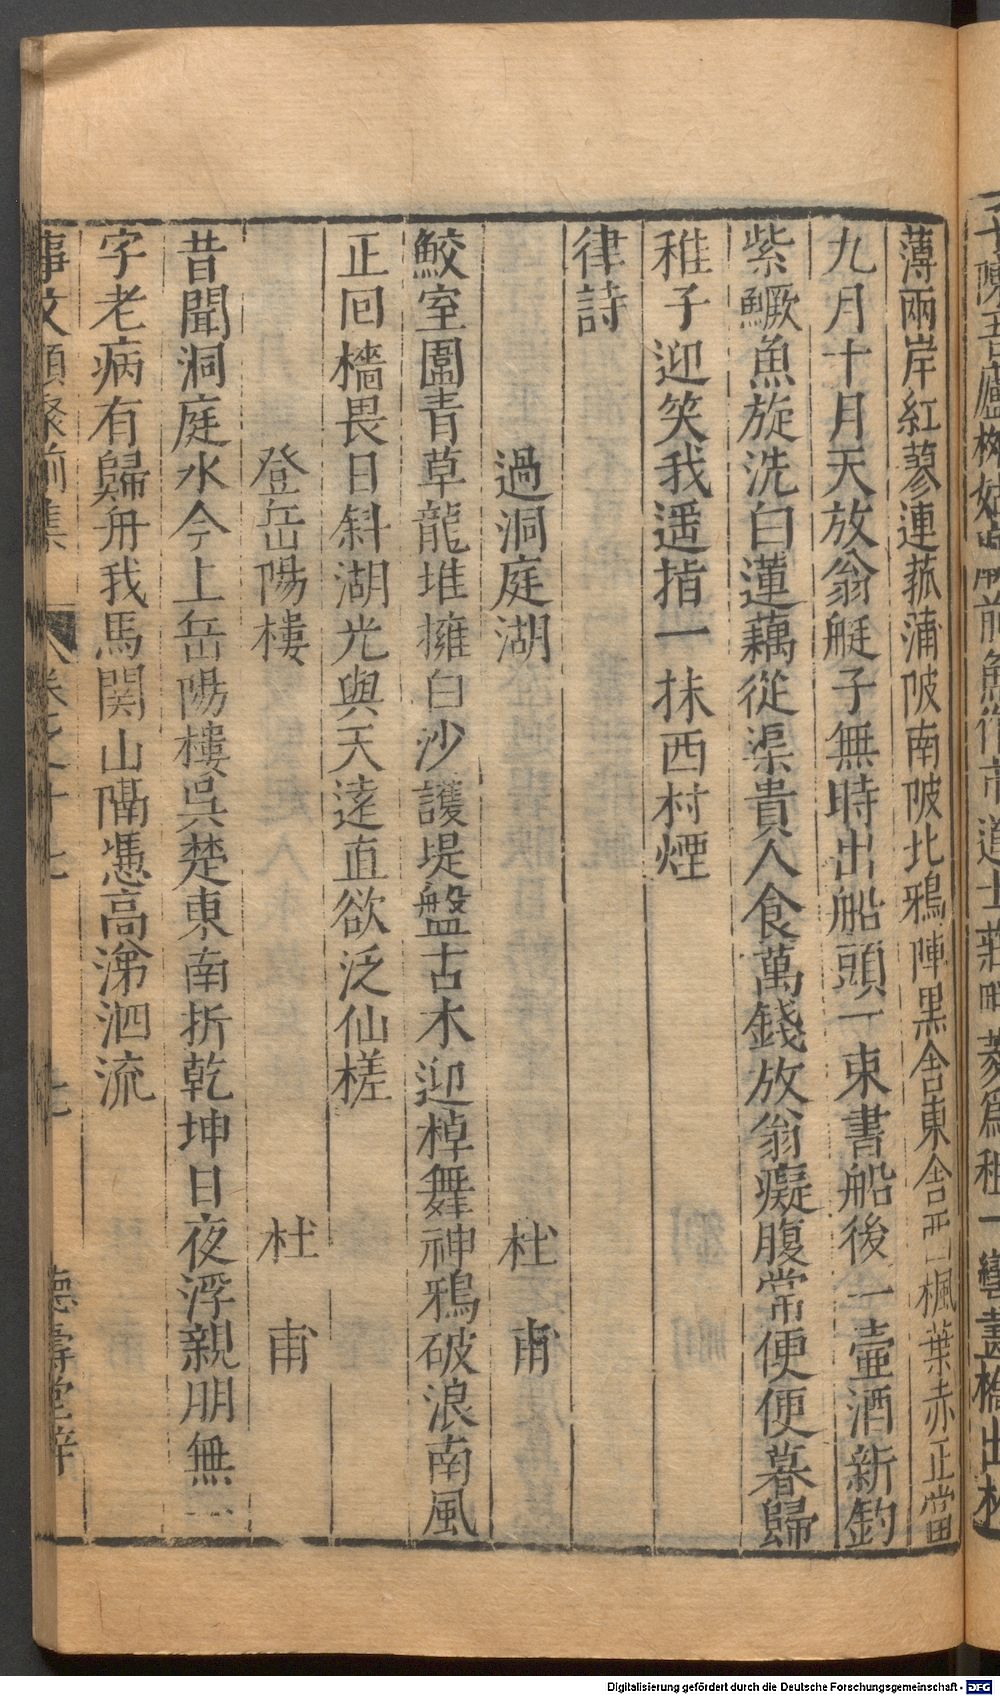 薄兩岸紅蓼連菰蒲陂南陂北鴉陣黑舍東舍西楓葉赤正當
九月十月天放翁艇子無時出船頭一束書船後一壷酒新釣
紫鱖魚旋洗白蓮藕從渠貴人食萬錢放翁癡腹常便便暮歸
稚子迎笑我遥指一抹西村煙
律詩
過洞庭湖 杜甫
鮫室圍青草龍堆擁白沙護堤盤古木迎棹舞神鴉破浪南風
正囘檣畏日斜湖光與天逺直欲泛仙槎
登岳陽樓 杜甫
昔聞洞庭水今上岳陽樓吳楚東南折乾坤日夜浮親朋無一
字老病有歸舟我馬関山隔慿高涕泗流
事文類聚前集 卷之十七 七 德壽堂梓
Digitalisierung gefördert durch die Deutsche Forschungsgemeinschaft - DFG